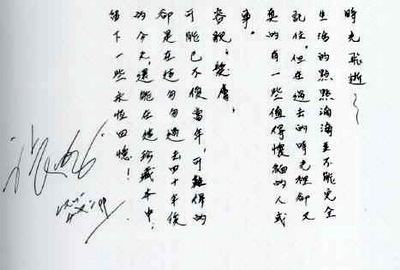 時光飛逝~~
生活的點點滴滴並不能完全
記住，但在過去的時光裡卻又
真的有一些值得懷緬的人或
事。
容貌、髮膚，
可能已不復當年，可難得的
卻是在這匆匆過去四十年後
的今天，還能在這珍藏本中，
留下一些永恆回憶！